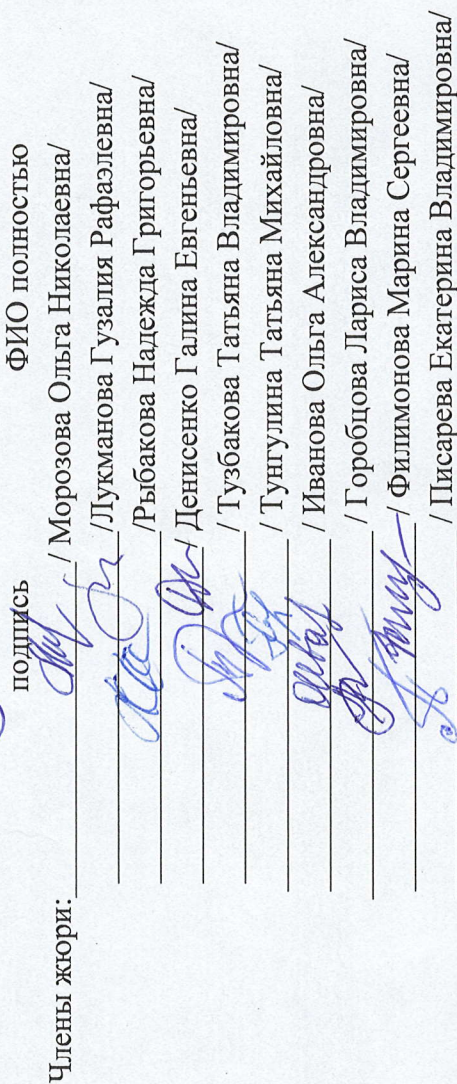 подпись ФИО полностью
Члены жюри: / Морозова Ольга Николаевна/
/Лукманова Гузалия Рафаэлевна/
/Рыбакова Надежда Григорьевна/
/ Денисенко Галина Евгеньевна/
/ Тузбакова Татьяна Владимировна/
/ Тунгулина Татьяна Михайловна/
/ Иванова Ольга Александровна/
/ Горобцова Лариса Владимировна/
/ Филимонова Марина Сергеевна/
/ Писарева Екатерина Владимировна/